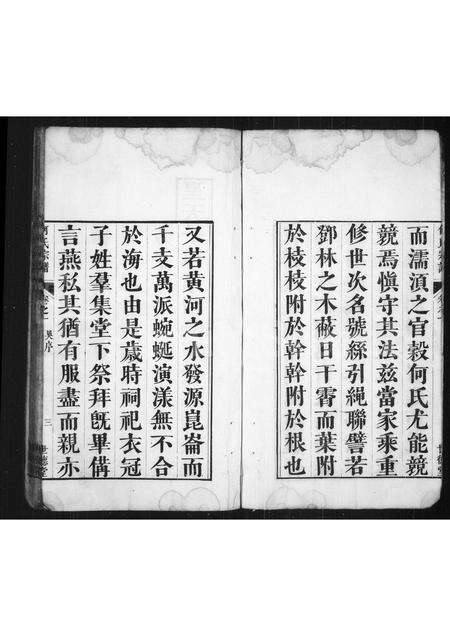 而濡湏之官毅何氏尤能競
競焉愼守其法茲當家乘重
修世次名號絲引繩聯譬若
鄧林之木蔽日干霄而葉附
於枝枝附於幹幹附於根也
又若黃河之水發源崑崙而
千支萬派蜿蜒演漾無不合
於海也由是歲時祠祀衣冠
子姓羣集堂下祭拜旣畢偹
言燕私其猶有服盡而親亦
何氏宗譜
卷之一
吳序
三
世德堂